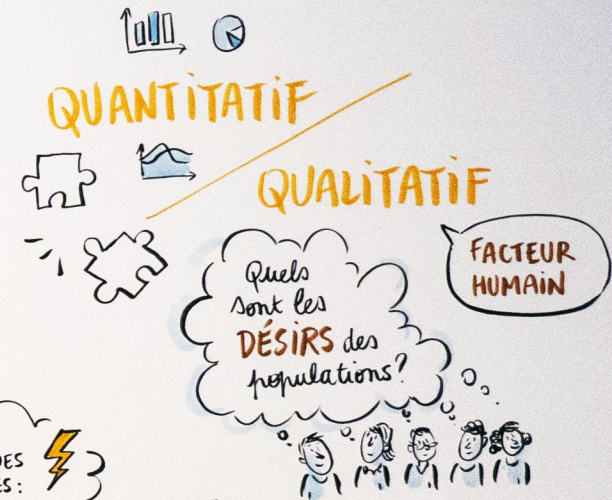 QUANTITATIF
QUALITATIF
FACTEUR
HUMAIN
Quels
sont les
DÉSIRS des
populations?